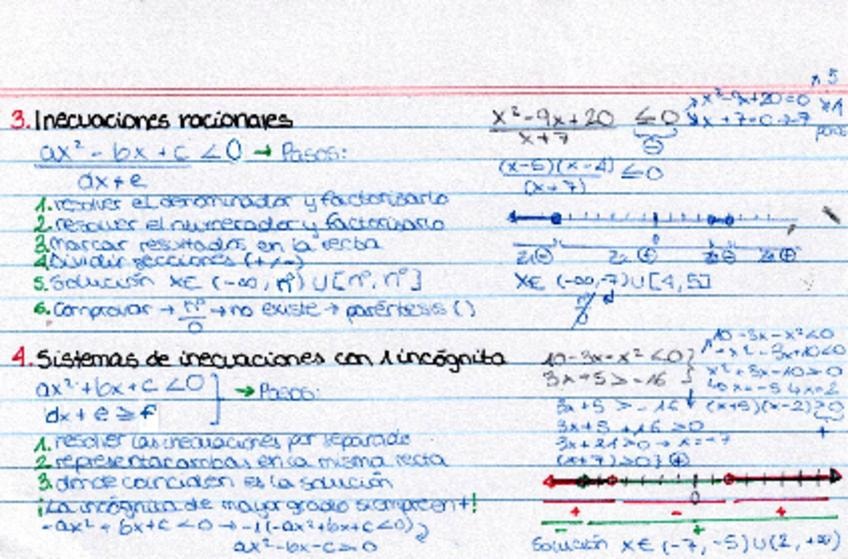 3. Inecuaciones racionales
ax² - bx + c < 0 → Pasos:
dx + e
1. resolver el denominador y factorizarlo
2. resolver el numerador y factorizarlo
3. marcar resultados en la recta
4. Dividir secciones (+/-)
5. Solución x∈ (-∞, nº) ∪ [nº, nº]
6. Comprovar → nº/0 → no existe → paréntesis ()
x² - 9x + 20 ≤ 0
x + 7
x² - 9x + 20 = 0
5
4
(x-5)(x-4) ≤ 0
(x+7)
0
x∈ (-∞,-7) ∪ [4,5]
4. Sistemas de inecuaciones con 1 incógnita
ax² + bx + c < 0 → Pasos:
dx + e ≥ f
1. resolver las inecuaciones por separado
2. representar ambas en la misma recta
3. donde coinciden es la solución
¡La incógnita de mayor grado siempre en +!
-ax² + bx + c < 0 → -1(-ax² + bx + c < 0)
ax² - bx - c > 0
10 - 3x - x² < 0
3x + 5 > -16
10 - 3x - x² < 0
-x² - 3x + 10 < 0
x² + 3x - 10 > 0
x = -5 x = 2
(x+5)(x-2) > 0
3x + 5 > -16
3x + 5 + 16 > 0
3x + 21 > 0 → x = -7
(x+7) > 0
0
+ - +
- +
Solución x∈ (-7, -5) ∪ (2, +∞)